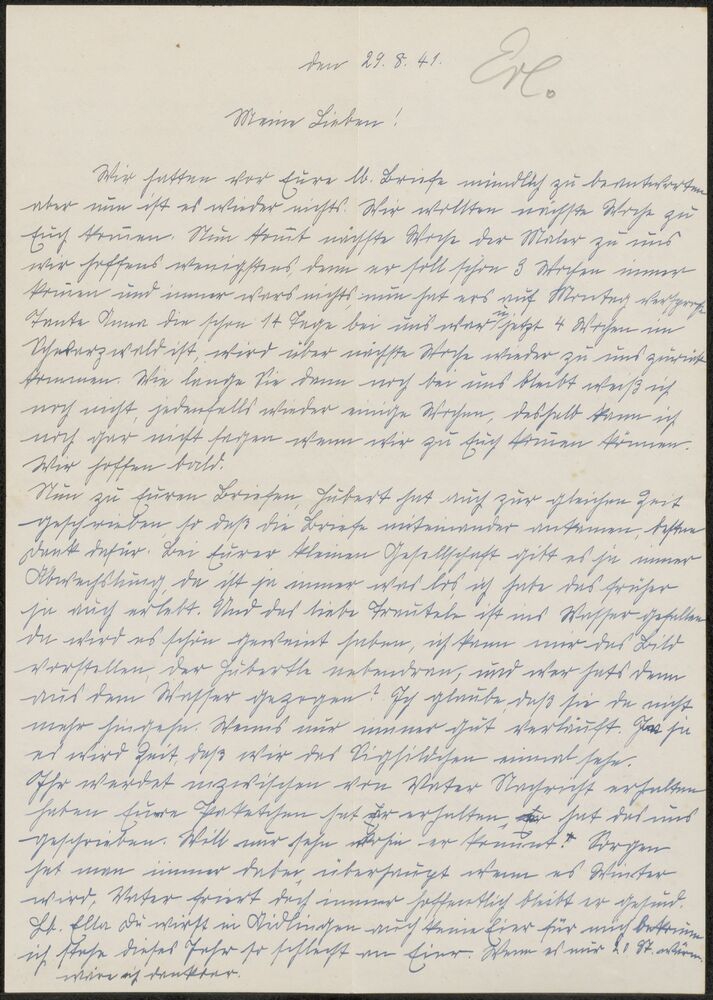 den 29. 8. 41.
Erl.
Meine Lieben!
Wir hatten vor Eure lb. Briefe mündlich zu beantworten
aber nun ist es wieder nichts. Wir wollten nächste Woche zu
Euch kommen. Nun kommt nächste Woche der Maler zu uns
wir hoffens wenigstens denn er soll schon 3 Wochen immer
kommen und immer wars nichts, nun hat ers auf Montag versproch
Tante Anna die schon 14 Tage bei uns war u. jetzt 4 Wochen im
Schwarzwald ist, wird über nächste Woche wieder zu uns zurück
kommen. Wie lange Sie dann noch bei uns bleibt weiß ich
noch nicht, jedenfalls wieder einige Wochen, deshalb kann ich
noch gar nicht sagen wenn wir zu Euch kommen können.
Wir hoffen bald.
Nun zu Euren Briefen, Hubert hat auch zur gleichen Zeit
geschrieben, so daß die Briefe miteinander ankamen, besten
Dank dafür. Bei Eurer kleinen Gesellschaft gibt es ja immer
Abwechslung, da ist ja immer was los ich habe das früher
ja auch erlebt. Und das liebe Trautele ist ins Wasser gefallen
da wird es schön geweint haben, ich kann mir das Bild
vorstellen, der Hubertle nebendran, und wer hats denn
aus dem Wasser gezogen? Ich glaube daß sie da nicht
mehr hingehn. Wenns nur immer gut verläuft. Ja ja
es wird Zeit, daß wir das Sighildchen einmal sehn.
Ihr werdet inzwischen von Vater Nachricht erhalten
haben Eure Paketchen hat er erhalten, er hat das uns
geschrieben. Will nur sehn wohin er kommt? Sorgen
hat man immer dabei, überhaupt wenn es Winter
wird, Vater friert doch immer hoffentlich bleibt er gesund.
Lb. Ella Du wirst in Aidlingen auch keine Eier für mich bekommen
ich stehe dieses Jahr so schlecht an Eier. Wenn es nur 20 St. wären
wäre ich dankbar.